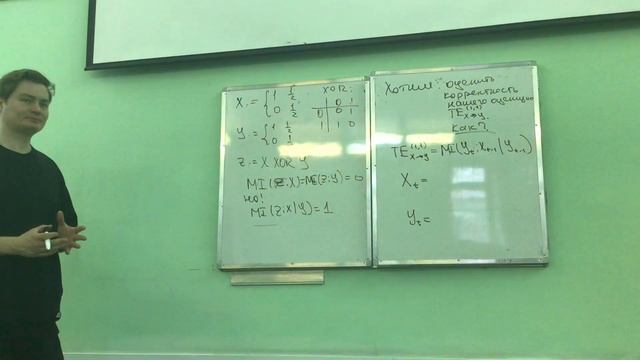 X := { 1 1/2
0 1/2
XOR:
0 1
0 0 1
1 1 0
y = { 1 1/2
0 1/2
Z := X XOR y
MI(Z;X)=MI(Z;y)=0
но!
MI(Z;X|y)=1
Хотим: оценить
корректность
нашего оценщика
TE^(1,1)_X→y.
Как?
TE^(1,1)_X→y = MI(y_t; X_t-1 | y_t-1)
X_t =
y_t =